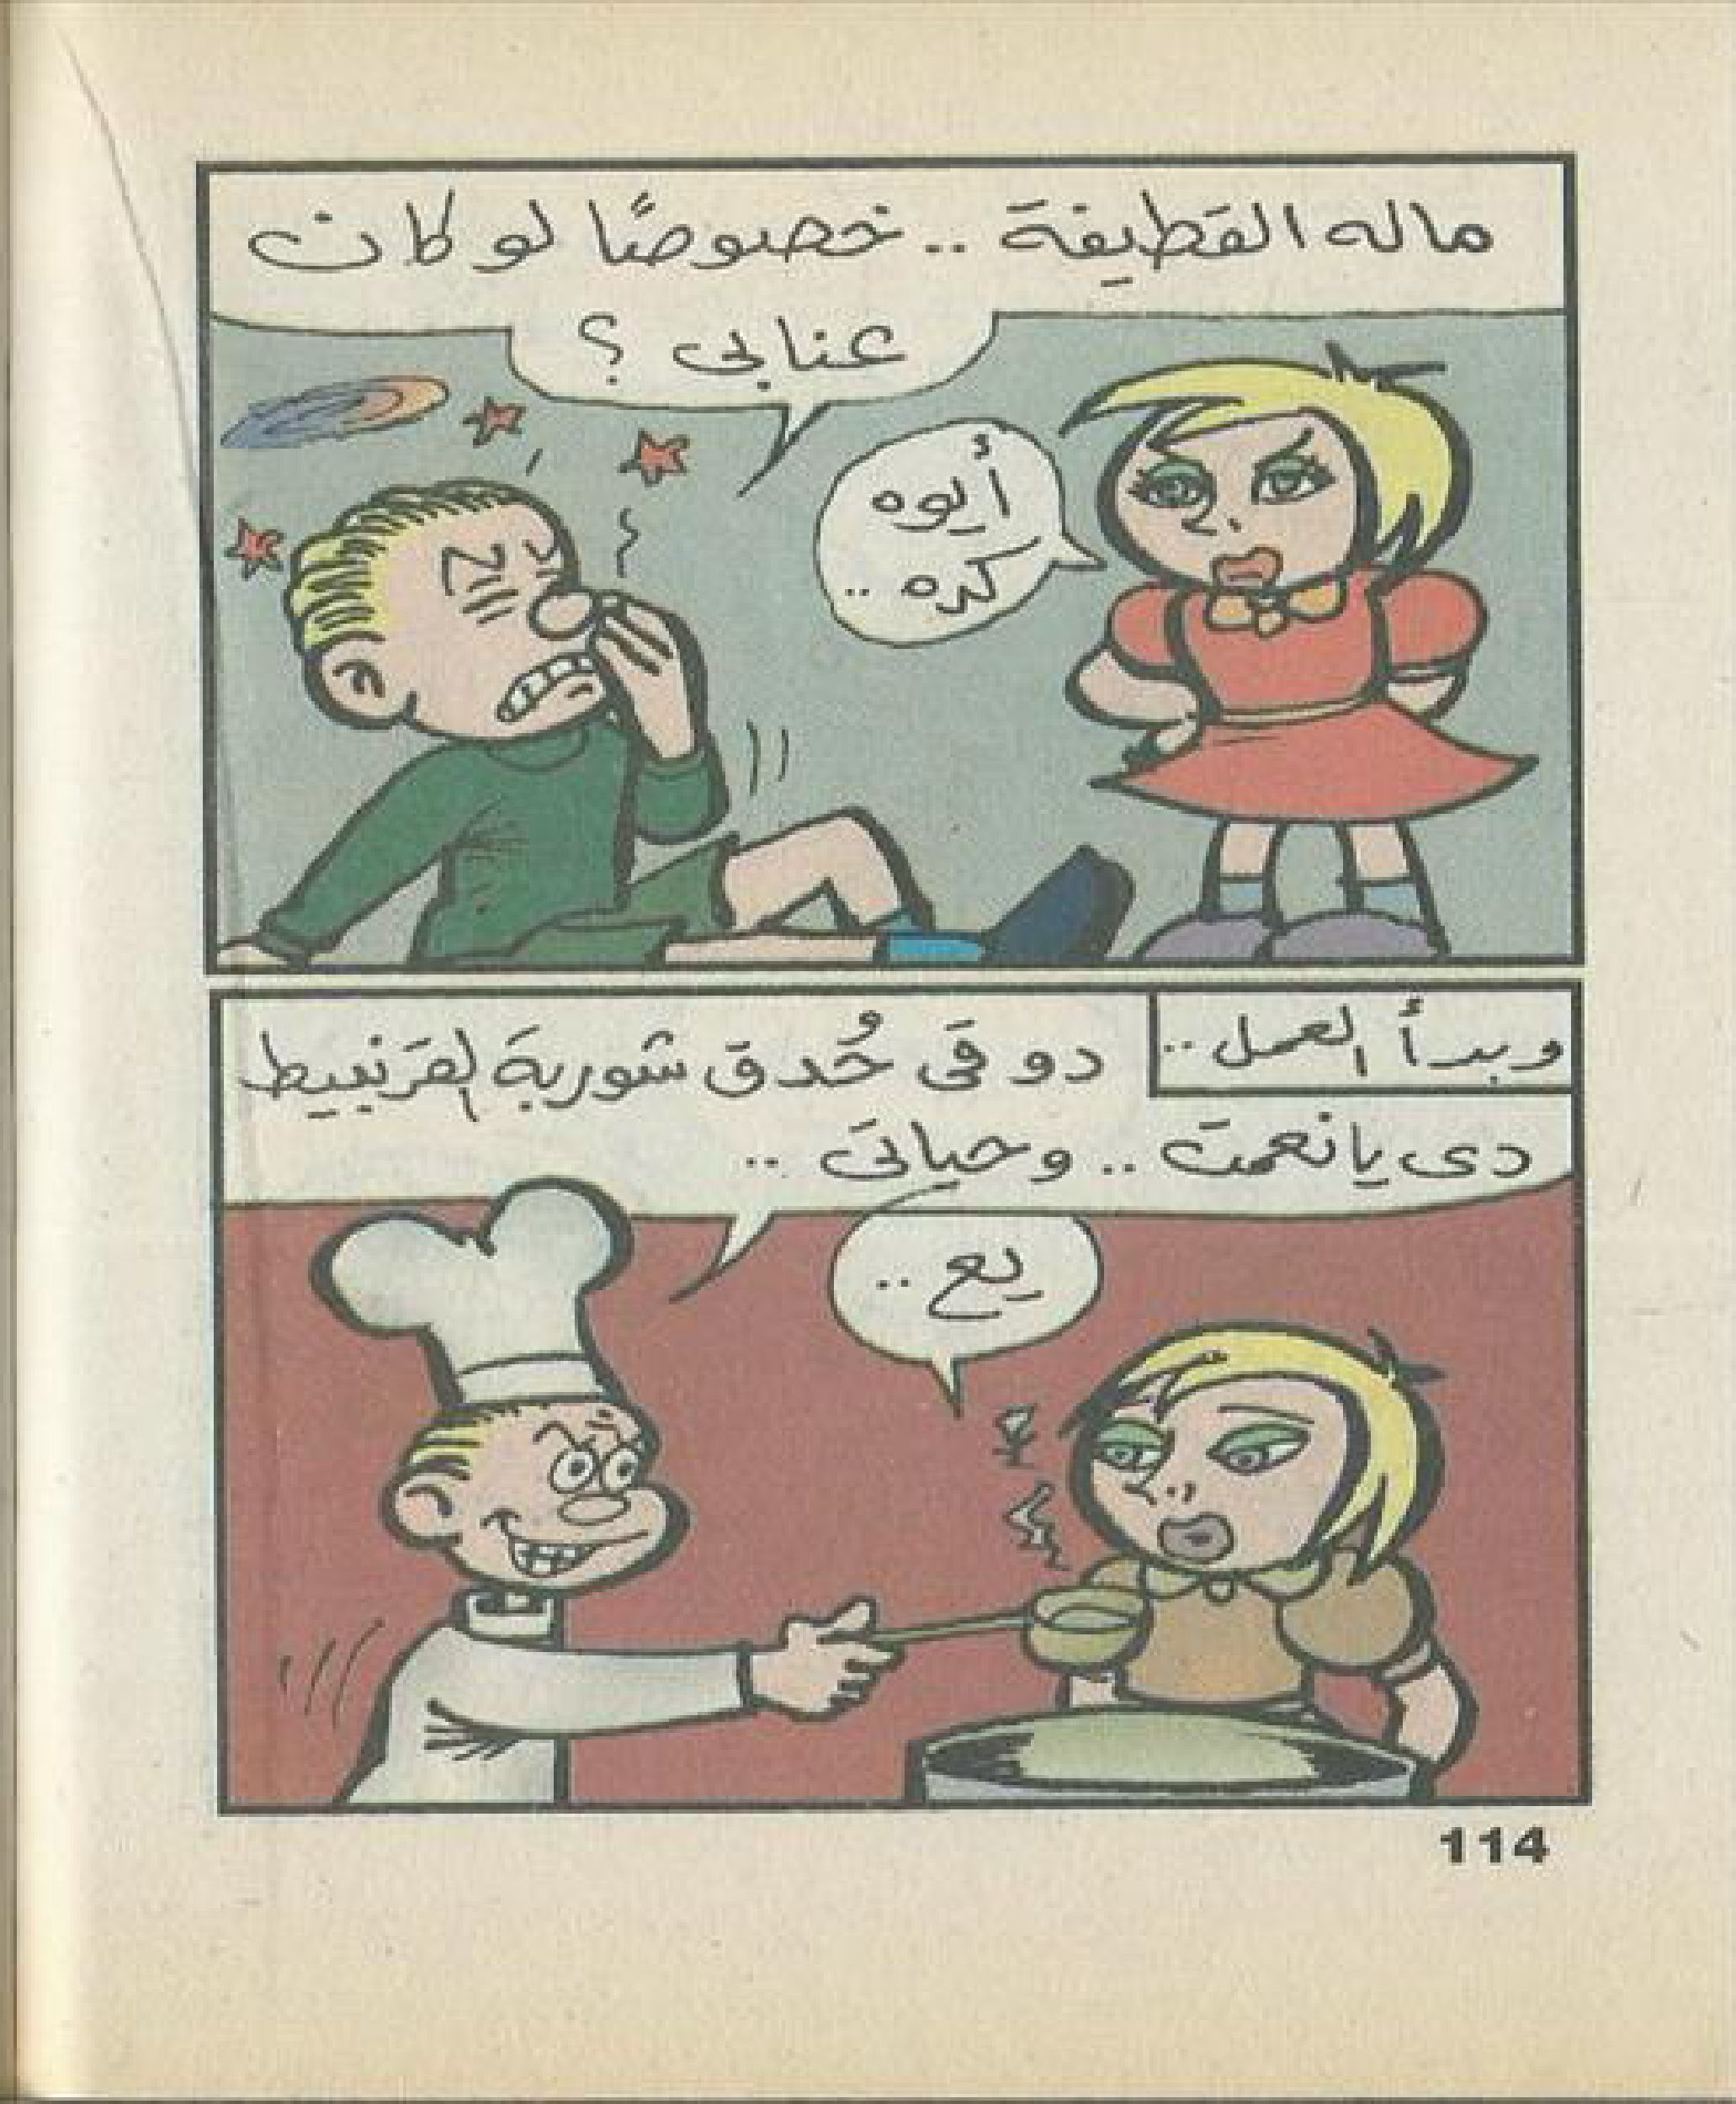 ماله القطيفة .. خصوصًا لو كان
عنابى ؟
أيوه
كده ..
وبدأ العمل ..
دوقى حُدق شوربة القرنبيط
دى يا نعمت .. وحياتى ..
يع ..
114